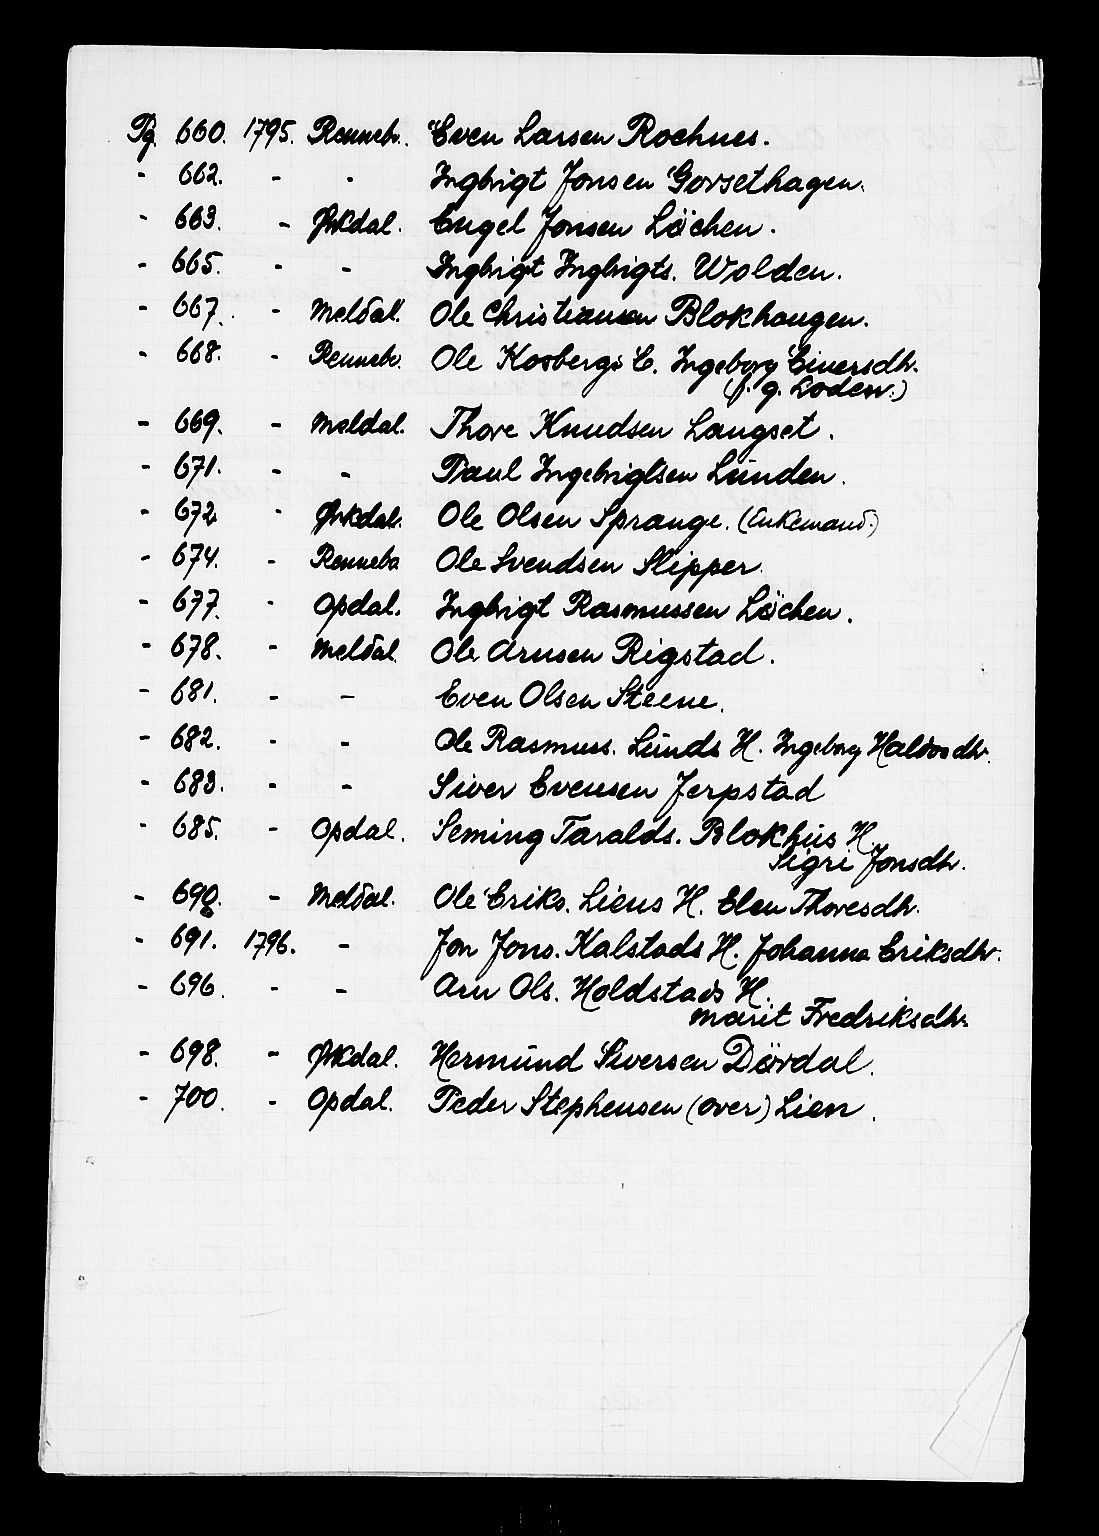 Pg. 660. 1795. Renneb. Even Larsen Rochnes.
- 662. - - Ingbrigt Jonsen Gorsethagen.
- 663. - Ørkdal. Engel Jonsen Löchen.
- 665. - - Ingbrigt Ingbrigts. Wolden.
- 667. - Meldal. Ole Christiansen Blokhaugen.
- 668. - Renneb. Ole Kosbergs E. Ingeborg Einersdtr.
(f. g. Loden.)
- 669. - Meldal. Thore Knudsen Langset.
- 671. - - Paul Ingebrigtsen Lunden.
- 672. - Ørkdal. Ole Olsen Sprange. (Enkemand.)
- 674. - Rennebo Ole Svendsen Slipper.
- 677. - Opdal. Ingbrigt Rasmussen Löchen.
- 678. - Meldal. Ole Arnsen Rigstad.
- 681. - - Even Olsen Steene.
- 682. - - Ole Rasmuss. Lunds H. Ingeborg Haldosdtr.
- 683. - - Siver Evensen Jerpstad
- 685. - Opdal. Seming Taralds. Blokhus H.
Sigri Jonsdtr.
- 690. - Meldal. Ole Eriks. Liens H. Elen Thoresdtr.
- 691. 1796. - Jon Jons. Kalstads H. Johanna Eriksdtr.
- 696. - - Arn Ols. Holdstads H.
Marit Fredriksdtr.
- 698. - Ørkdal. Hermund Siversen Dördal.
- 700. - Opdal. Peder Stephensen (over) Lien.